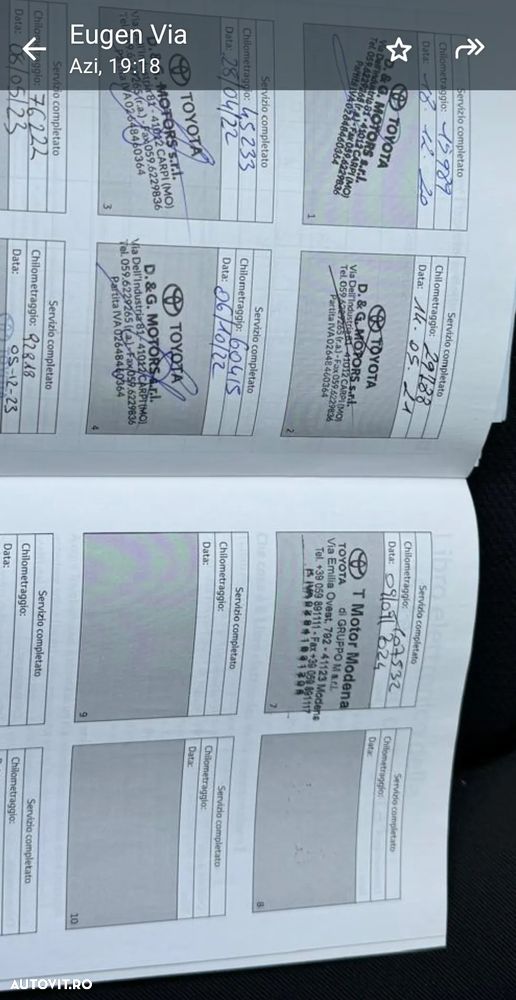 Eugen Via
Azi, 19:18
Servizio completato
Chilometraggio: 15989
Data: 18.12.20
TOYOTA
D. & G. MOTORS s.r.l.
Via Dell'Industria 81 - 41012 CARPI (MO)
Tel. 059.6229265 (r.a.) - Fax 059.6229836
Partita IVA 02648460364
1
Servizio completato
Chilometraggio: 29188
Data: 14.05.21
TOYOTA
D. & G. MOTORS s.r.l.
Via Dell'Industria 81 - 41012 CARPI (MO)
Tel. 059.6229265 (r.a.) - Fax 059.6229836
Partita IVA 02648460364
2
Servizio completato
Chilometraggio: 45233
Data: 28/04/22
TOYOTA
D. & G. MOTORS s.r.l.
Via Dell'Industria 81 - 41012 CARPI (MO)
Tel. 059.6229265 (r.a.) - Fax 059.6229836
Partita IVA 02648460364
3
Servizio completato
Chilometraggio: 60415
Data: 06/10/22
TOYOTA
D. & G. MOTORS s.r.l.
Via Dell'Industria 81 - 41012 CARPI (MO)
Tel. 059.6229265 (r.a.) - Fax 059.6229836
Partita IVA 02648460364
4
Servizio completato
Chilometraggio: 76222
Data: 08/05/23
Servizio completato
Chilometraggio: 92818
Data: 05-12-23
Servizio completato
Chilometraggio: 107532
Data:
T Motor Modena
TOYOTA di GRUPPO M s.r.l.
Via Emilia Ovest, 792 - 41123 Modena
Tel. +39 059 891111 - Fax +39 059 891117
7
Servizio completato
Chilometraggio:
Data:
8
Servizio completato
Chilometraggio:
Data:
9
Servizio completato
Chilometraggio:
Data:
10
Servizio completato
Chilometraggio:
Data:
Servizio completato
Chilometraggio:
AUTOVIT.RO